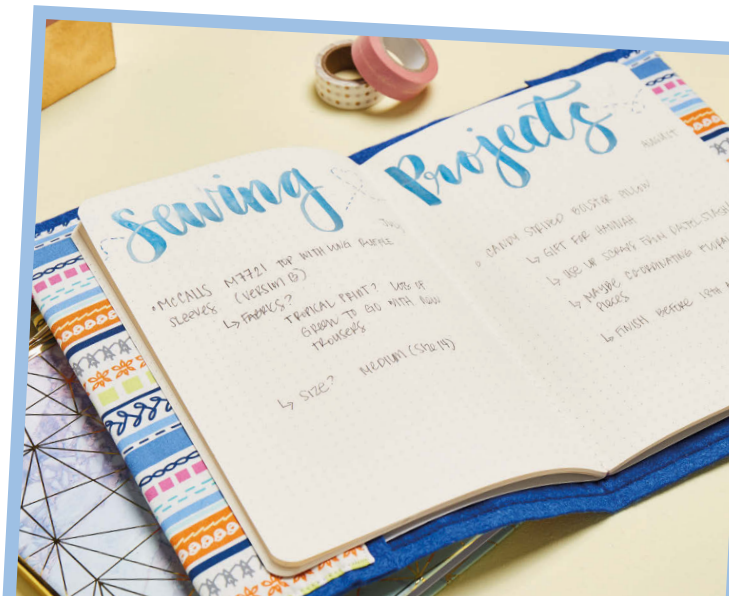 Sewing
Projects
JULY
• McCALLS M7721 TOP WITH LONG RUFFLE
SLEEVES (VERSION B)
↳ FABRICS?
TROPICAL PRINT? LOTS OF
GREEN TO GO WITH NEW
TROUSERS
↳ SIZE? MEDIUM (Size 14)
AUGUST
• CANDY STRIPED BOLSTER PILLOW
↳ GIFT FOR HANNAH
↳ USE UP SCRAPS FROM PASTEL
↳ MAYBE CO-ORDINATING
PIECES
↳ FINISH BEFORE 18TH